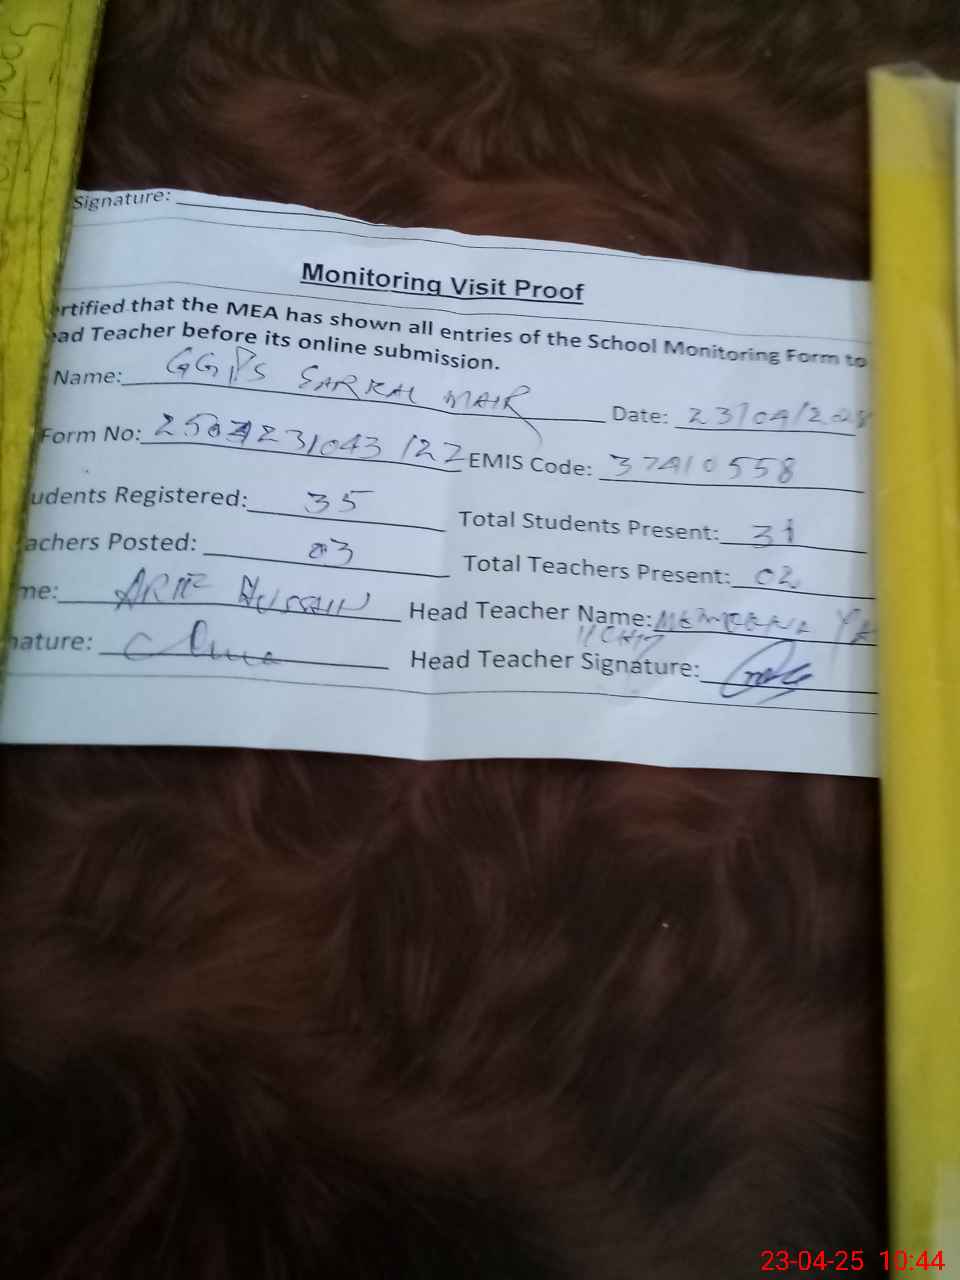 Signature:
Monitoring Visit Proof
rtified that the MEA has shown all entries of the School Monitoring Form to
ad Teacher before its online submission.
Name: GGPS SARKAL MAIR Date: 23/04/2025
Form No: EMIS Code: 37410558
udents Registered: 35 Total Students Present: 31
achers Posted: 03 Total Teachers Present: 02
me: ARIF HUSSAIN Head Teacher Name:
nature: Head Teacher Signature:
23-04-25 10:44